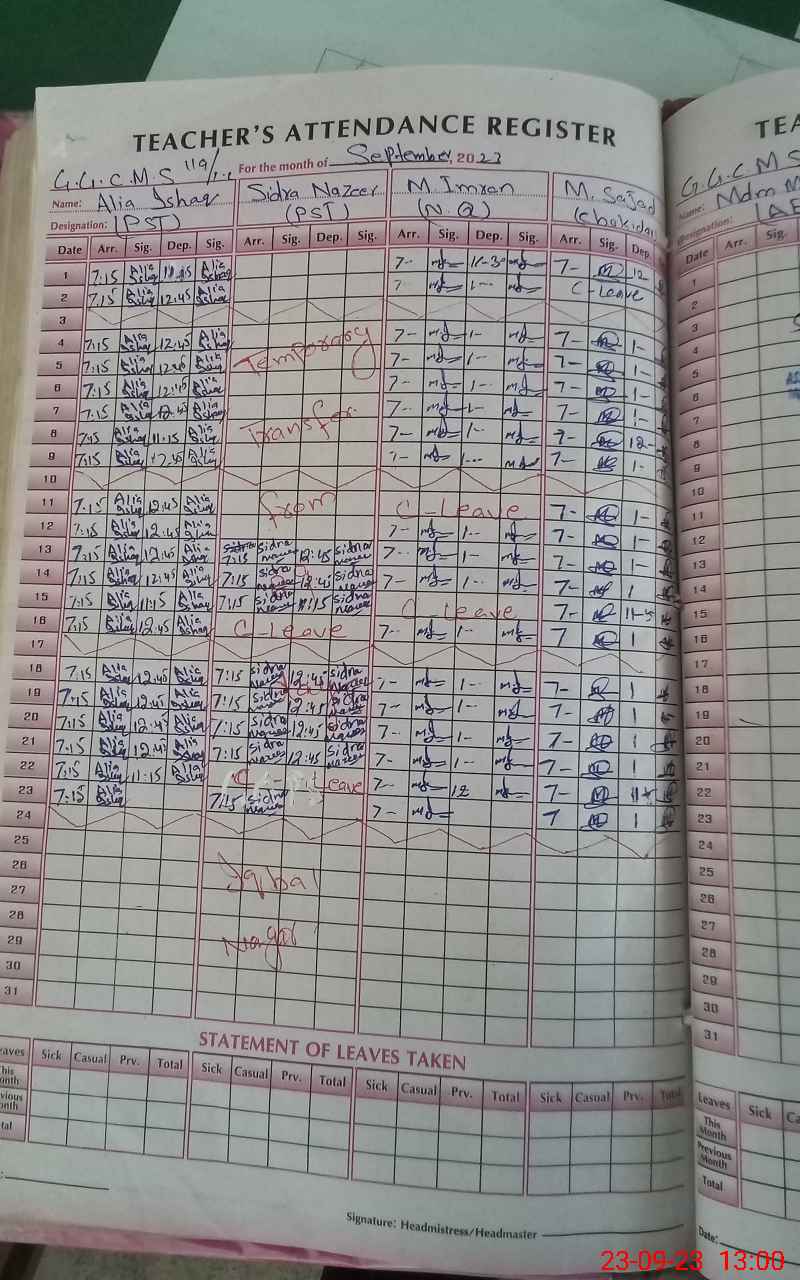 TEACHER'S ATTENDANCE REGISTER
G.G.C.M.S 119/ For the month of September, 2023
Name: Alia Ishaq Sidra Nazeer M. Imran M. Sajad
Designation: (PST) (PST) (N.Q) (Chokidar
Date Arr. Sig. Dep. Sig. Arr. Sig. Dep. Sig. Arr. Sig. Dep. Sig. Arr. Sig. Dep.
1 7:15 Alia Ishaq 11:15 Alia Ishaq 7- 11-30 7- 12-
2 7:15 Alia Ishaq 12:45 Alia Ishaq 7- 1- C-Leave
3
4 7:15 Alia Ishaq 12:45 Alia Ishaq Temporary 7- 1- 7- 1-
5 7:15 Alia Ishaq 12:45 Alia Ishaq 7- 1- 7- 1-
6 7:15 Alia Ishaq 12:45 Alia Ishaq 7- 1- 7- 1-
7 7:15 Alia Ishaq 12:45 Alia Ishaq Transfer 7- 1- 7- 1-
8 7:15 Alia Ishaq 11:15 Alia Ishaq 7- 1- 7- 12-
9 7:15 Alia Ishaq 12:45 Alia Ishaq 7- 1- 7- 1-
10
11 7:15 Alia Ishaq 12:45 Alia Ishaq from C-Leave 7- 1-
12 7:15 Alia Ishaq 12:45 Alia Ishaq 7- 1- 7- 1-
13 7:15 Alia Ishaq 12:45 Alia Ishaq 7:15 Sidra Nazeer 12:45 Sidra Nazeer 7- 1- 7- 1-
14 7:15 Alia Ishaq 12:45 Alia Ishaq 7:15 Sidra Nazeer 12:45 Sidra Nazeer 7- 1- 7- 1
15 7:15 Alia Ishaq 11:15 Alia Ishaq 7:15 Sidra Nazeer 11:15 Sidra Nazeer C Leave 7-
16 7:15 Alia Ishaq 12:45 Alia Ishaq C-Leave 7- 1- 7 1
17
18 7:15 Alia Ishaq 12:45 Alia Ishaq 7:15 Sidra Nazeer 12:45 Sidra Nazeer 7- 1- 7- 1
19 7:15 Alia Ishaq 12:45 Alia Ishaq 7:15 Sidra Nazeer 12:45 Sidra Nazeer 7- 1- 7- 1
20 7:15 Alia Ishaq 12:45 Alia Ishaq 7:15 Sidra Nazeer 12:45 Sidra Nazeer 7- 1- 7- 1
21 7:15 Alia Ishaq 12:45 Alia Ishaq 7:15 Sidra Nazeer 12:45 Sidra Nazeer 7- 1- 7- 1
22 7:15 Alia Ishaq 11:15 Alia Ishaq C Leave 7- 12 7-
23 7:15 Alia Ishaq 7:15 Sidra Nazeer 7- 7 1
24
25
26 Iqbal
27
28 Nagar
29
30
31
STATEMENT OF LEAVES TAKEN
eaves Sick Casual Prv. Total Sick Casual Prv. Total Sick Casual Prv. Total Sick Casual Prv. Total
This onth
vious onth
tal
Signature: Headmistress/Headmaster
TEA
G.G.C.M.S
Name: Mdm M
Designation: (AE
Date Arr. Sig.
1
2
3
4
5
6
7
8
9
10
11
12
13
14
15
16
17
18
19
20
21
22
23
24
25
26
27
28
29
30
31
Leaves Sick Ca
This Month
Previous Month
Total
Date:
23-09-23 13:00